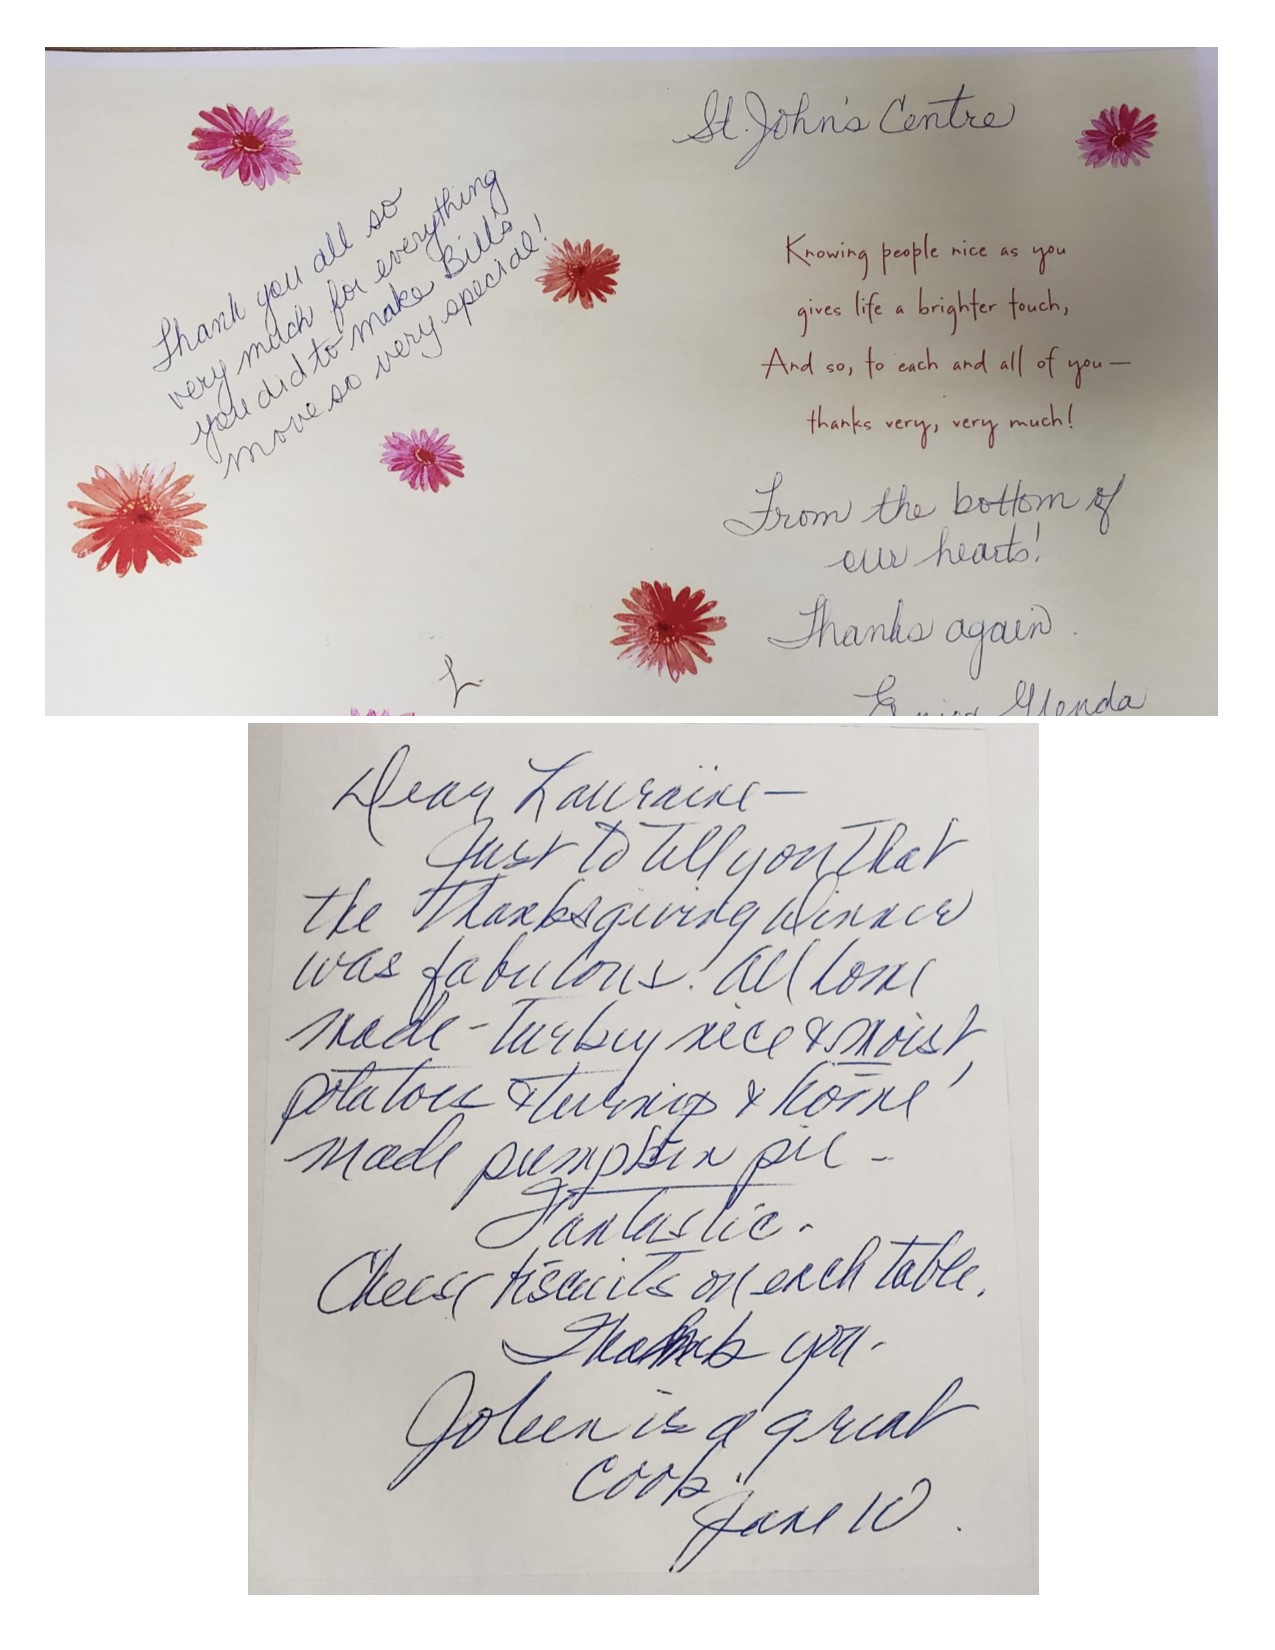 Thank you all so
very much for everything
you did to make Bill's
move so very special!
St. John's Centre
Knowing people nice as you
gives life a brighter touch,
And so, to each and all of you—
thanks very, very much!
From the bottom of
our hearts!
Thanks again
Glenda
Dear Lauraine—
Just to tell you that
the Thanksgiving Dinner
was fabulous. All home
made - Turkey nice & moist,
potatoes & turnip & home
made pumpkin pie -
Fantastic.
Cheese biscuits on each table.
Thank you.
Joleen is a great
cook.